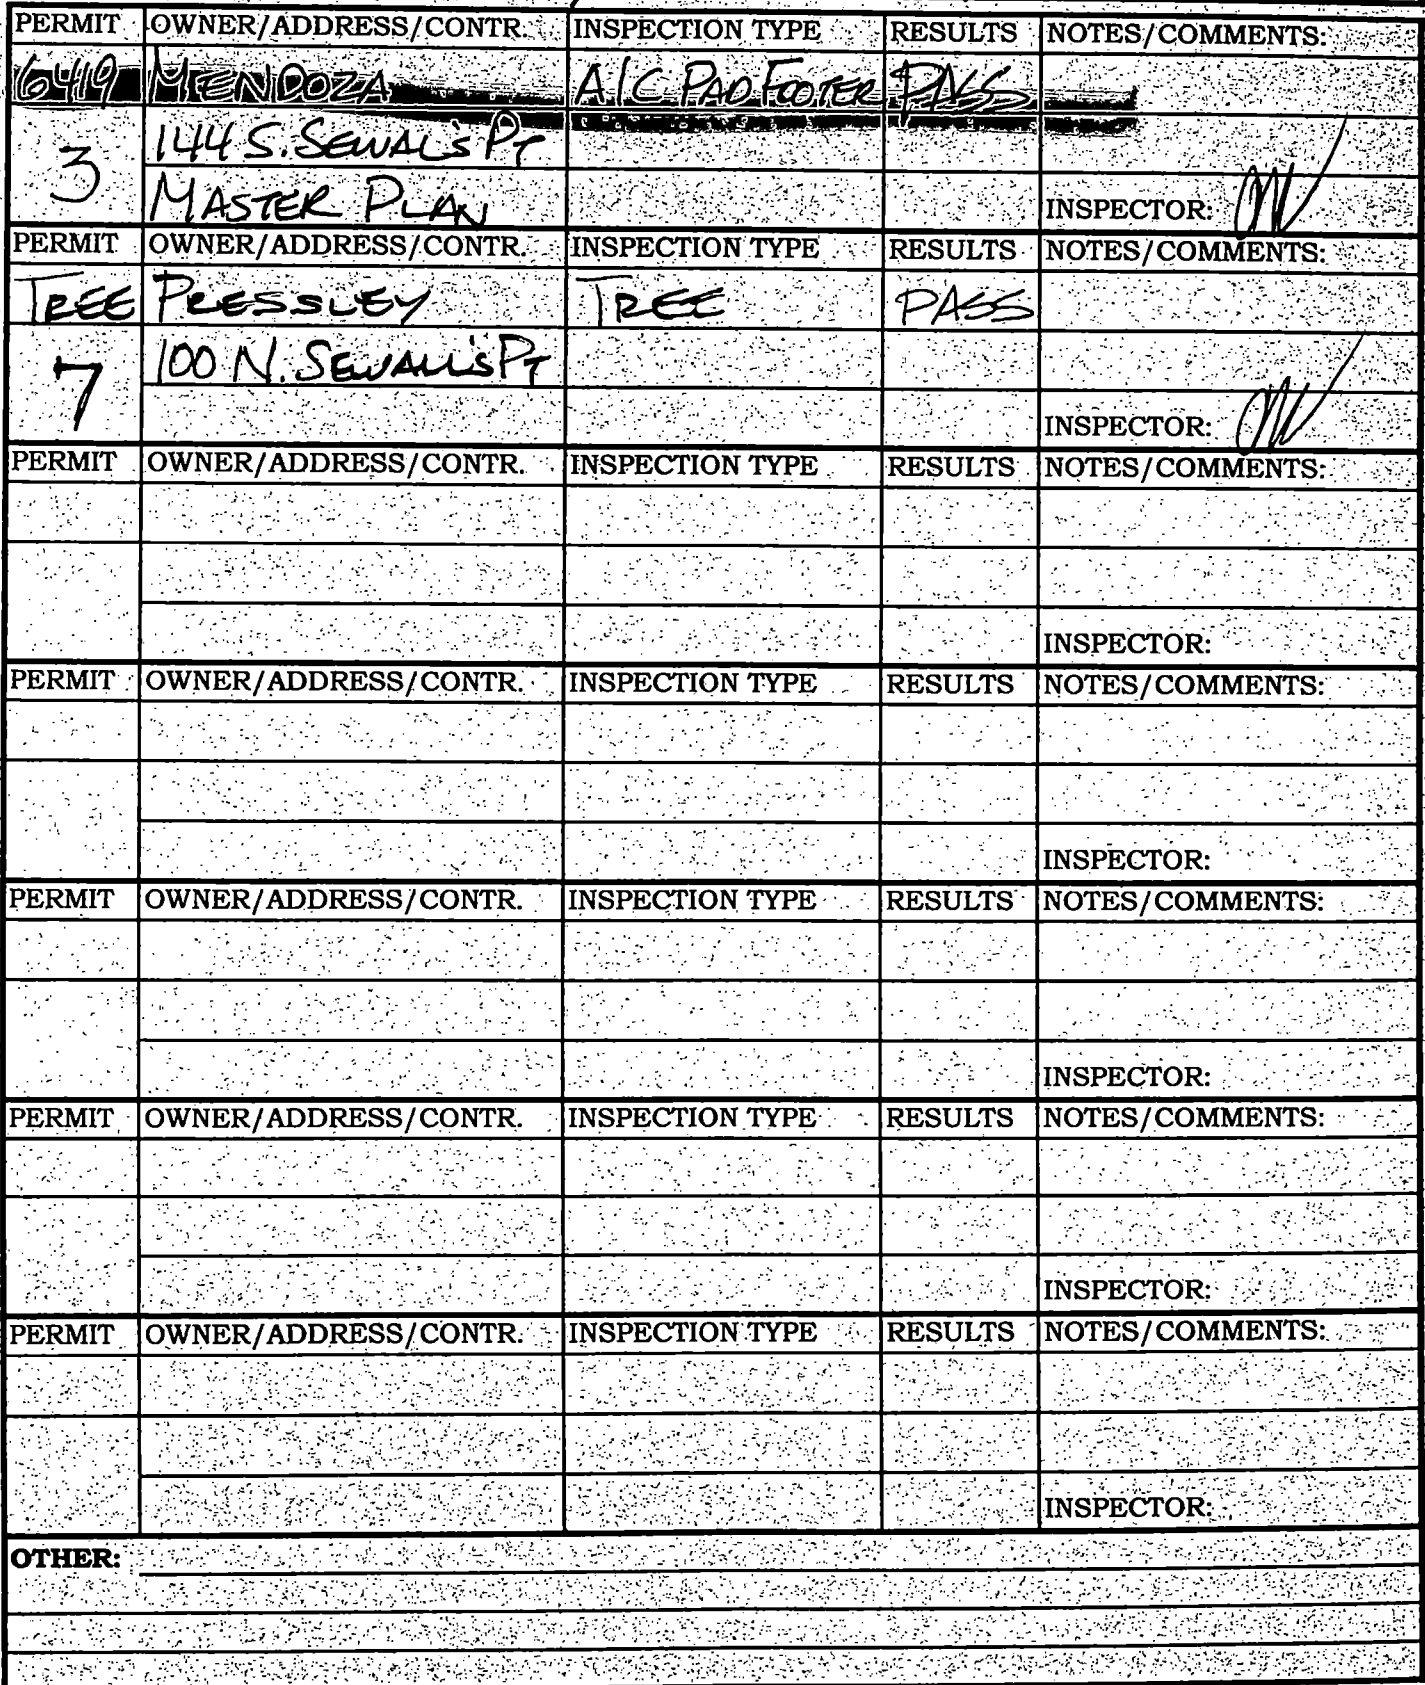 PERMIT OWNER/ADDRESS/CONTR. INSPECTION TYPE RESULTS NOTES/COMMENTS:
6419 MENDOZA A/C PAD FOOTER PASS
3 144 S. SEWAL'S PT
MASTER PLAN INSPECTOR:
PERMIT OWNER/ADDRESS/CONTR. INSPECTION TYPE RESULTS NOTES/COMMENTS:
TREE PRESSLEY TREE PASS
7 100 N. SEWALL'S PT
INSPECTOR:
PERMIT OWNER/ADDRESS/CONTR. INSPECTION TYPE RESULTS NOTES/COMMENTS:
INSPECTOR:
PERMIT OWNER/ADDRESS/CONTR. INSPECTION TYPE RESULTS NOTES/COMMENTS:
INSPECTOR:
PERMIT OWNER/ADDRESS/CONTR. INSPECTION TYPE RESULTS NOTES/COMMENTS:
INSPECTOR:
PERMIT OWNER/ADDRESS/CONTR. INSPECTION TYPE RESULTS NOTES/COMMENTS:
INSPECTOR:
PERMIT OWNER/ADDRESS/CONTR. INSPECTION TYPE RESULTS NOTES/COMMENTS:
INSPECTOR:
OTHER: